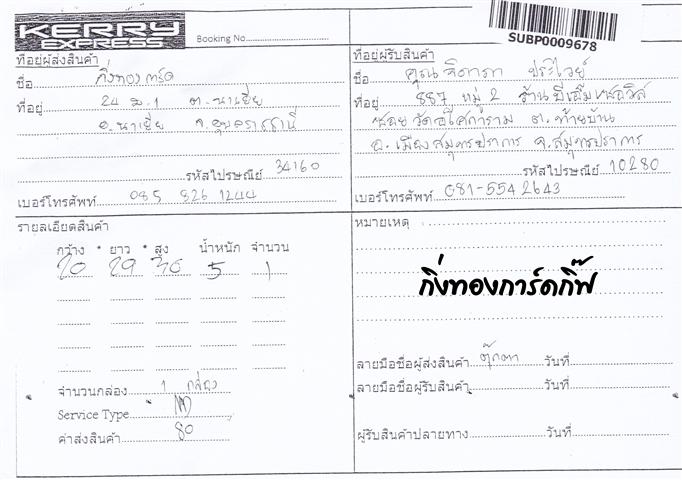 KERRY EXPRESS
Booking No.
SUBP0009678
ที่อยู่ผู้ส่งสินค้า
ชื่อ กิ่งทองการ์ด
ที่อยู่ 20 ม.1 ต.นาเยีย
อ.นาเยีย จ.อุบลราชธานี
รหัสไปรษณีย์ 34160
เบอร์โทรศัพท์ 085 826 1244
ที่อยู่ผู้รับสินค้า
ชื่อ คุณ
ที่อยู่ 887 หมู่ 2 ร้าน
ซอยวัดอโศการาม ต.ท้ายบ้าน
อ.เมืองสมุทรปราการ จ.สมุทรปราการ
รหัสไปรษณีย์ 10280
เบอร์โทรศัพท์ 081-554 2643
รายละเอียดสินค้า
กว้าง * ยาว * สูง น้ำหนัก จำนวน
20 29 5 1
จำนวนกล่อง 1 กล่อง
Service Type
ค่าส่งสินค้า 80
หมายเหตุ
กิ่งทองการ์ดกิ๊ฟ
ลายมือชื่อผู้ส่งสินค้า ตุ๊กตา วันที่
ลายมือชื่อผู้รับสินค้า วันที่
ผู้รับสินค้าปลายทาง วันที่